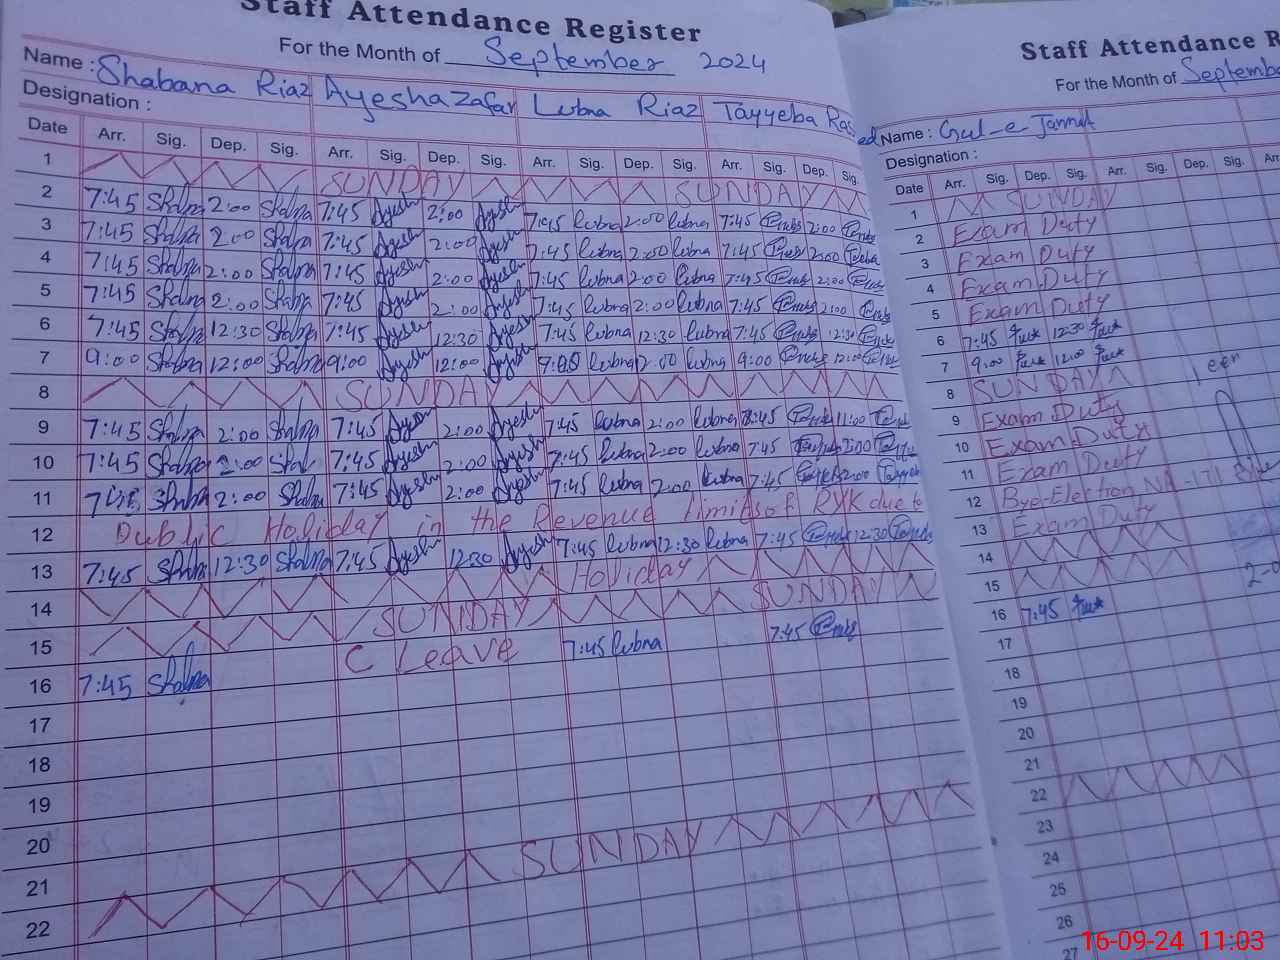 Staff Attendance Register
For the Month of September 2024
Name : Shabana Riaz Ayesha Zafar Lubna Riaz Tayyeba Rasheed
Designation :
Date Arr. Sig. Dep. Sig. Arr. Sig. Dep. Sig. Arr. Sig. Dep. Sig. Arr. Sig. Dep. Sig.
1 SUNDAY SUNDAY
2 7:45 Shabna 2:00 Shabna 7:45 Ayesha 2:00 Ayesha 7:45 Lubna 2:00 Lubna 7:45 2:00
3 7:45 Shabna 2:00 Shabna 7:45 Ayesha 2:00 Ayesha 7:45 Lubna 2:00 Lubna 7:45 2:00
4 7:45 Shabna 2:00 Shabna 7:45 Ayesha 2:00 Ayesha 7:45 Lubna 2:00 Lubna 7:45 2:00
5 7:45 Shabna 2:00 Shabna 7:45 Ayesha 2:00 Ayesha 7:45 Lubna 2:00 Lubna 7:45 2:00
6 7:45 Shabna 12:30 Shabna 7:45 Ayesha 12:30 Ayesha 7:45 Lubna 12:30 Lubna 7:45 12:30
7 9:00 Shabna 12:00 Shabna 9:00 Ayesha 12:00 Ayesha Lubna Lubna 9:00 12:00
8 SUNDAY
9 7:45 Shabna 2:00 Shabna 7:45 Ayesha 2:00 Ayesha 7:45 Lubna 2:00 Lubna 11:00
10 7:45 Shabna 2:00 7:45 Ayesha 2:00 Ayesha 7:45 Lubna 2:00 Lubna 7:45
11 7:45 Shabna 2:00 Shabna 7:45 Ayesha 2:00 Ayesha 7:45 Lubna 2:00 Lubna 7:45 2:00
12 Public Holiday in the Revenue limits of RYK due to
13 7:45 Shabna 12:30 Shabna 7:45 Ayesha 12:30 Ayesha 7:45 Lubna 12:30 Lubna 7:45 12:30
14 Holiday
15 SUNDAY SUNDAY
16 7:45 Shabna C Leave 7:45 Lubna 7:45
17
18
19
20
21
22 SUNDAY
Staff Attendance R
For the Month of Septembe
Name : Gul-e-Jannat
Designation :
Date Arr. Sig. Dep. Sig. Arr. Sig. Dep. Sig. Arr
1 SUNDAY
2 Exam Duty
3 Exam Duty
4 Exam Duty
5 Exam Duty
6 7:45 12:30
7 9:00 12:00
8 SUNDAY
9 Exam Duty
10 Exam Duty
11 Exam Duty
12 Bye-Election NA-171
13 Exam Duty
14
15
16 7:45
17
18
19
20
21
22
23
24
25
26
27
16-09-24 11:03